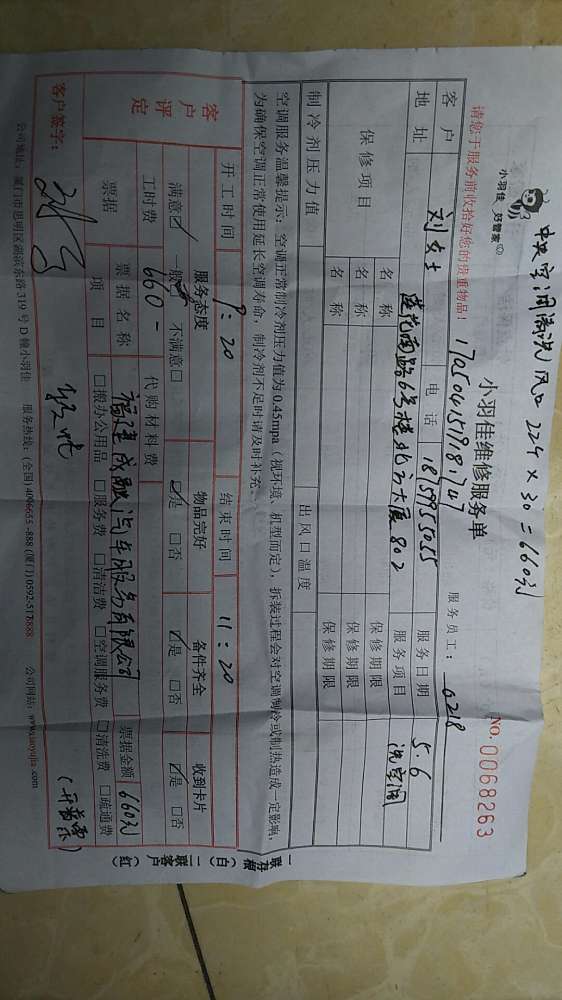 中央空调清洗 风口 22个 × 30 = 660元
小羽佳 好管家
小羽佳维修服务单
NO. 0068263
170504159781747
请您于服务前收拾好您的贵重物品!
服务员工: 0218
客户 刘女士 电话 18759955055 服务日期 5.6
地址 莲花南路6号楼北方大厦802 服务项目 洗空调
保修项目 名称 保修期限
名称 保修期限
名称 保修期限
制冷剂压力值 出风口温度
空调服务温馨提示:空调正常制冷剂压力值为0.45mpa(视环境、机型而定),拆装过程会对空调制冷或制热造成一定影响,
为确保空调正常使用延长空调寿命,制冷剂不足时请及时补充。
开工时间 9:20 结束时间 11:20
客户评定 服务态度 物品完好 备件齐全 收到卡片
满意☑ 一般 不满意□ ☑是 □否 ☑是 □否 ☑是 □否
工时费 660- 代购材料费
票据 票据名称 福建成融汽车服务有限公司 票据金额 660元
项目 □搬办公用品 □服务费 □清洁费 □空调服务费 □清洗费 □疏通费
客户签字: (开普票)
公司地址:厦门市思明区湖滨东路319号D幢小羽佳 服务热线:(全国)4006655-888 (厦门)0592-5178888 公司网站:www.xiaoyujia.com
一联存根(白) 二联客户(红)